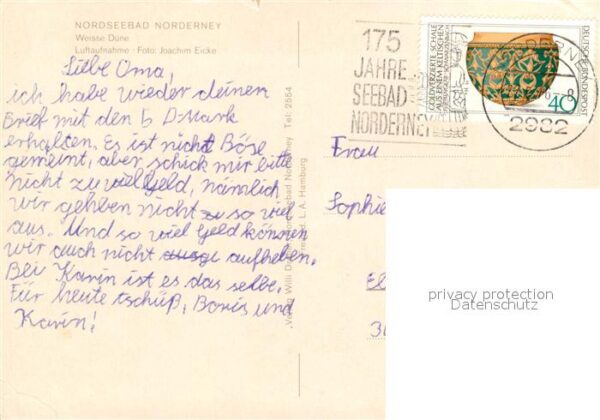 NORDSEEBAD NORDERNEY
Weisse Düne
Luftaufnahme: Foto: Joachim Eicke
Liebe Oma,
ich habe wieder deinen
Brief mit den 5 D-Mark
erhalten. Es ist nicht Böse
gemeint, aber schick mir bitte
nicht zu viel Geld, nämlich
wir gehben nicht zu so viel
aus. Und so viel Geld können
wir auch nicht ausge aufheben.
Bei Karin ist es das selbe.
Für heute tschüß, Boris und
Karin!
Norderney Tel: 2554
L.A. Hamburg
175
JAHRE
SEEBAD
NORDERNEY
GOLDVERZIERTE SCHALE
AUS EINEM KELTISCHEN
DEUTSCHE BUNDESPOST
40
2982
Frau
Sophie
privacy protection
Datenschutz